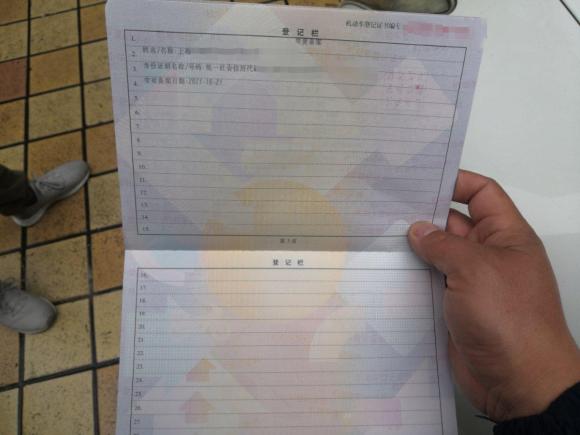 机动车登记证书编号
登 记 栏
1. 变更备案
2. 姓名/名称:上海
3. 身份证明名称/号码:统一社会信用代
4. 变更备案日期:2021-10-21
5.
6.
7.
8.
9.
10.
11.
12.
13.
14.
15.
第 3 页
登 记 栏
16.
17.
18.
19.
20.
21.
22.
23.
24.
25.
26.
27.